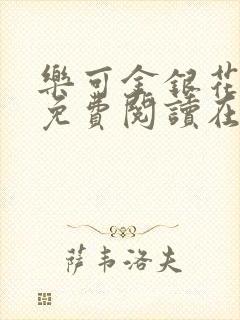 樂可金銀花
免費閱讀在
萨韦洛夫